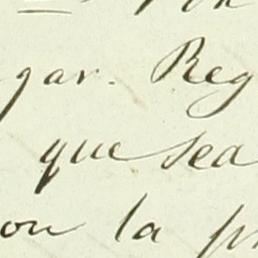 gar. Reg
que sea
on la p